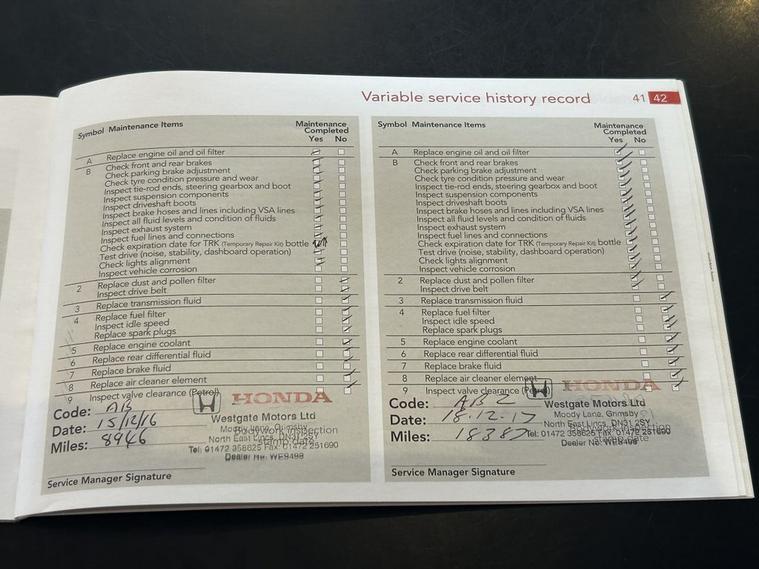 Variable service history record 41 42
Symbol Maintenance Items Maintenance Completed Yes No
A Replace engine oil and oil filter
B Check front and rear brakes
Check parking brake adjustment
Check tyre condition pressure and wear
Inspect tie-rod ends, steering gearbox and boot
Inspect suspension components
Inspect driveshaft boots
Inspect brake hoses and lines including VSA lines
Inspect all fluid levels and condition of fluids
Inspect exhaust system
Inspect fuel lines and connections
Check expiration date for TRK (Temporary Repair Kit) bottle
Test drive (noise, stability, dashboard operation)
Check lights alignment
Inspect vehicle corrosion
2 Replace dust and pollen filter
Inspect drive belt
3 Replace transmission fluid
4 Replace fuel filter
Inspect idle speed
Replace spark plugs
5 Replace engine coolant
6 Replace rear differential fluid
7 Replace brake fluid
8 Replace air cleaner element
9 Inspect valve clearance (Petrol)
HONDA
Code: AB
Westgate Motors Ltd
Date: 15/12/16
Moody Lane, Grimsby
North East Lincs, DN31 2SY
Miles: 8946
Tel: 01472 358625 Fax: 01472 251690
Dealer No: WE9498
Bodywork inspection
stamp date
Service Manager Signature
Symbol Maintenance Items Maintenance Completed Yes No
A Replace engine oil and oil filter
B Check front and rear brakes
Check parking brake adjustment
Check tyre condition pressure and wear
Inspect tie-rod ends, steering gearbox and boot
Inspect suspension components
Inspect driveshaft boots
Inspect brake hoses and lines including VSA lines
Inspect all fluid levels and condition of fluids
Inspect exhaust system
Inspect fuel lines and connections
Check expiration date for TRK (Temporary Repair Kit) bottle
Test drive (noise, stability, dashboard operation)
Check lights alignment
Inspect vehicle corrosion
2 Replace dust and pollen filter
Inspect drive belt
3 Replace transmission fluid
4 Replace fuel filter
Inspect idle speed
Replace spark plugs
5 Replace engine coolant
6 Replace rear differential fluid
7 Replace brake fluid
8 Replace air cleaner element
9 Inspect valve clearance (Petrol)
HONDA
Code: ABC
Westgate Motors Ltd
Date: 18.12.17
Moody Lane, Grimsby
North East Lincs, DN31 2SY
Miles: 18387
Tel: 01472 358625 Fax: 01472 251690
Dealer No: WE9498
stamp date
Service Manager Signature